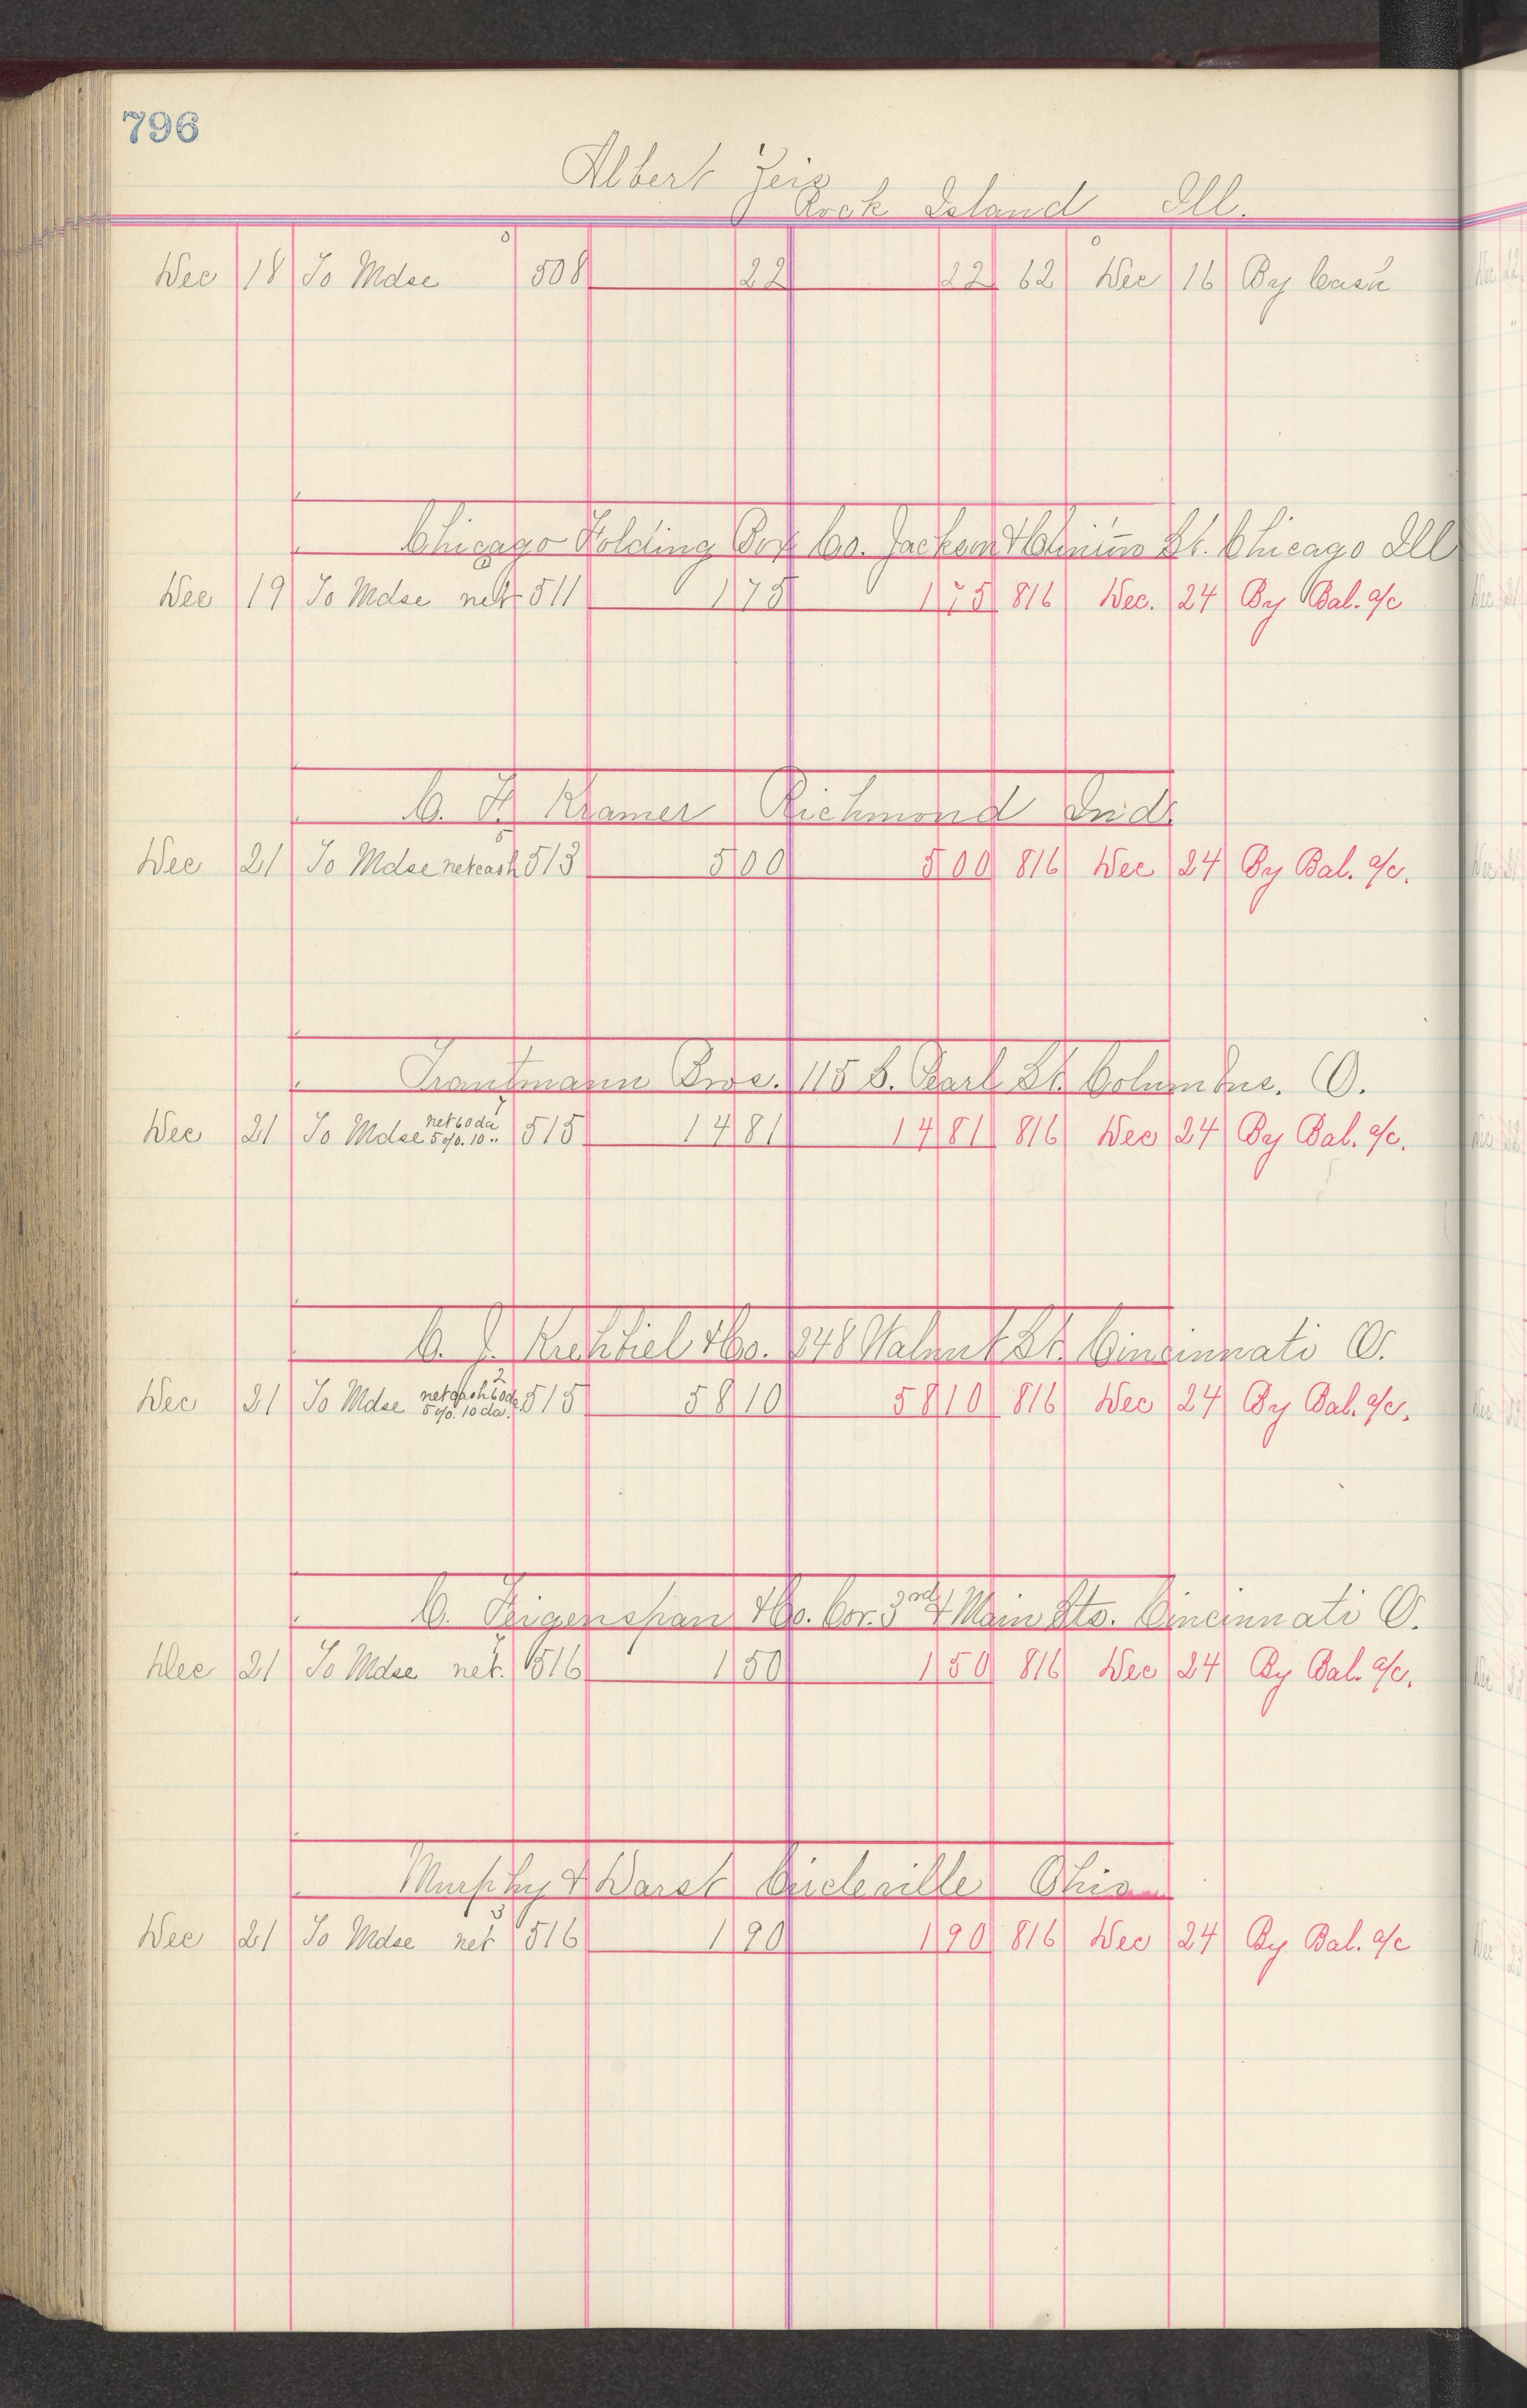 796
Albert Zeis
Rock Island Ill.
Dec 18 To Mdse 508 22 22 62 Dec 16 By Cash
Chicago Folding Box Co. Jackson & Clinton St. Chicago Ill
Dec 19 To Mdse net 511 1 75 1 75 816 Dec. 24 By Bal. a/c
C. F. Kramer Richmond Ind.
Dec 21 To Mdse net cash 513 5 00 5 00 816 Dec 24 By Bal. a/c.
Trautmann Bros. 115 S. Pearl St. Columbus. O.
Dec 21 To Mdse net 60 da 5%. 10 " 515 14 81 14 81 816 Dec 24 By Bal. a/c.
C. J. Krehbiel & Co. 248 Walnut St. Cincinnati O.
Dec 21 To Mdse net cash 60 da 5%. 10 da. 515 58 10 58 10 816 Dec 24 By Bal. a/c.
C. Feigenspan & Co. Cor. 3rd & Main Sts. Cincinnati O.
Dec 21 To Mdse net. 516 1 50 1 50 816 Dec 24 By Bal. a/c.
Murphy & Darst Circleville Ohio
Dec 21 To Mdse net 516 1 90 1 90 816 Dec 24 By Bal. a/c